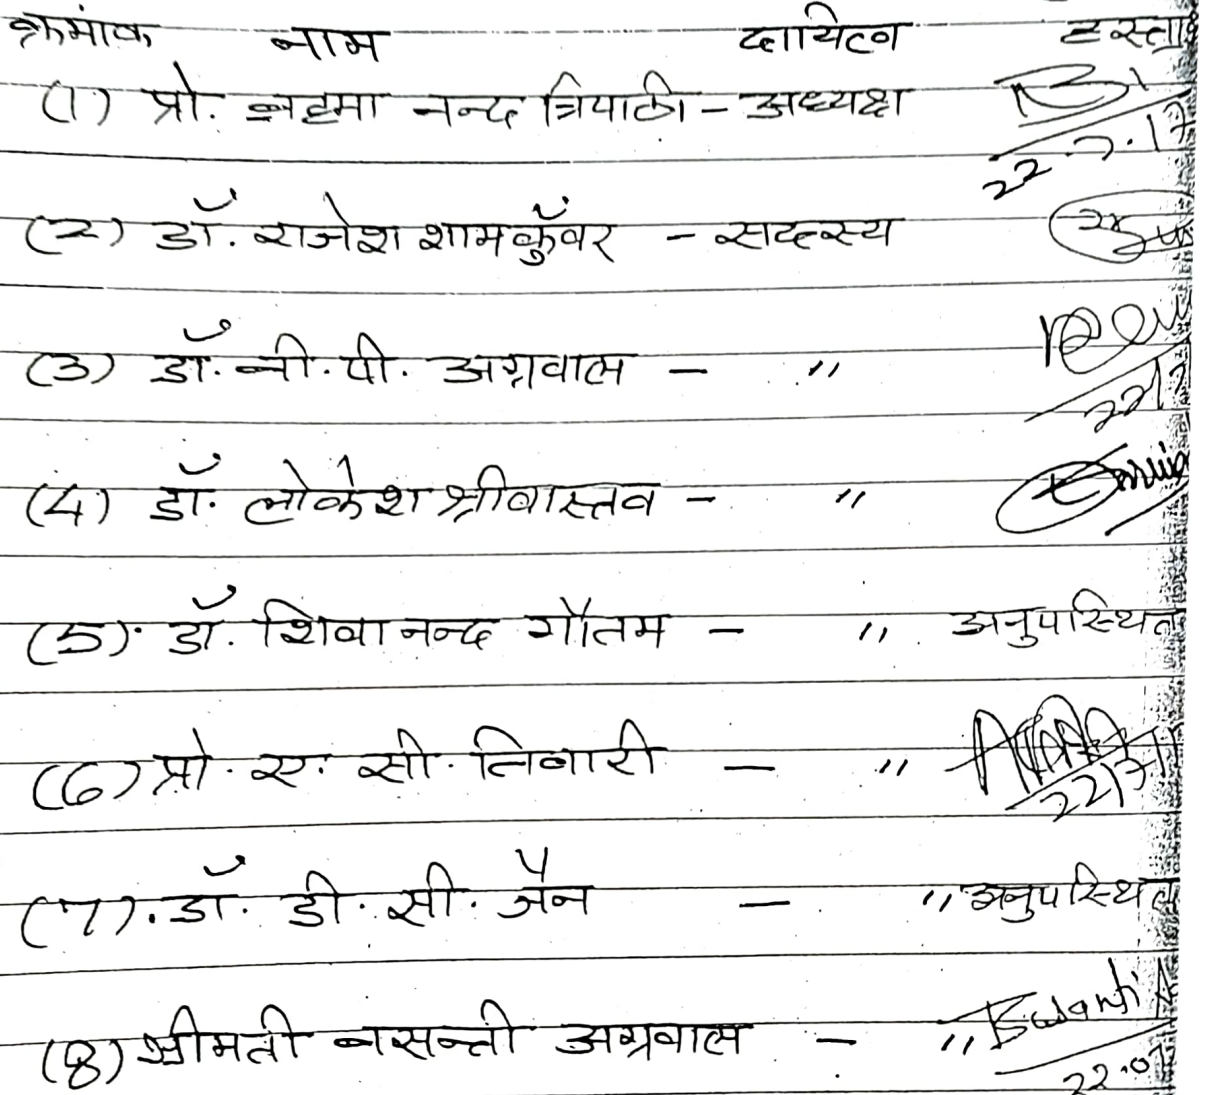 क्रमांक नाम दायित्व हस्ताक्ष
(1) प्रो. ब्रह्मा नन्द त्रिपाठी - अध्यक्ष
22.7.17
(2) डॉ. राजेश शामकुँवर - सदस्य
(3) डॉ. बी. पी. अग्रवाल - "
22/7
(4) डॉ. लोकेश श्रीवास्तव - "
(5). डॉ. शिवानन्द गौतम - " अनुपस्थित
(6) प्रो. ए. सी. तिवारी - "
22/7
(7). डॉ. डी. सी. जैन - " अनुपस्थित
(8) श्रीमती बसन्ती अग्रवाल - "
22.07